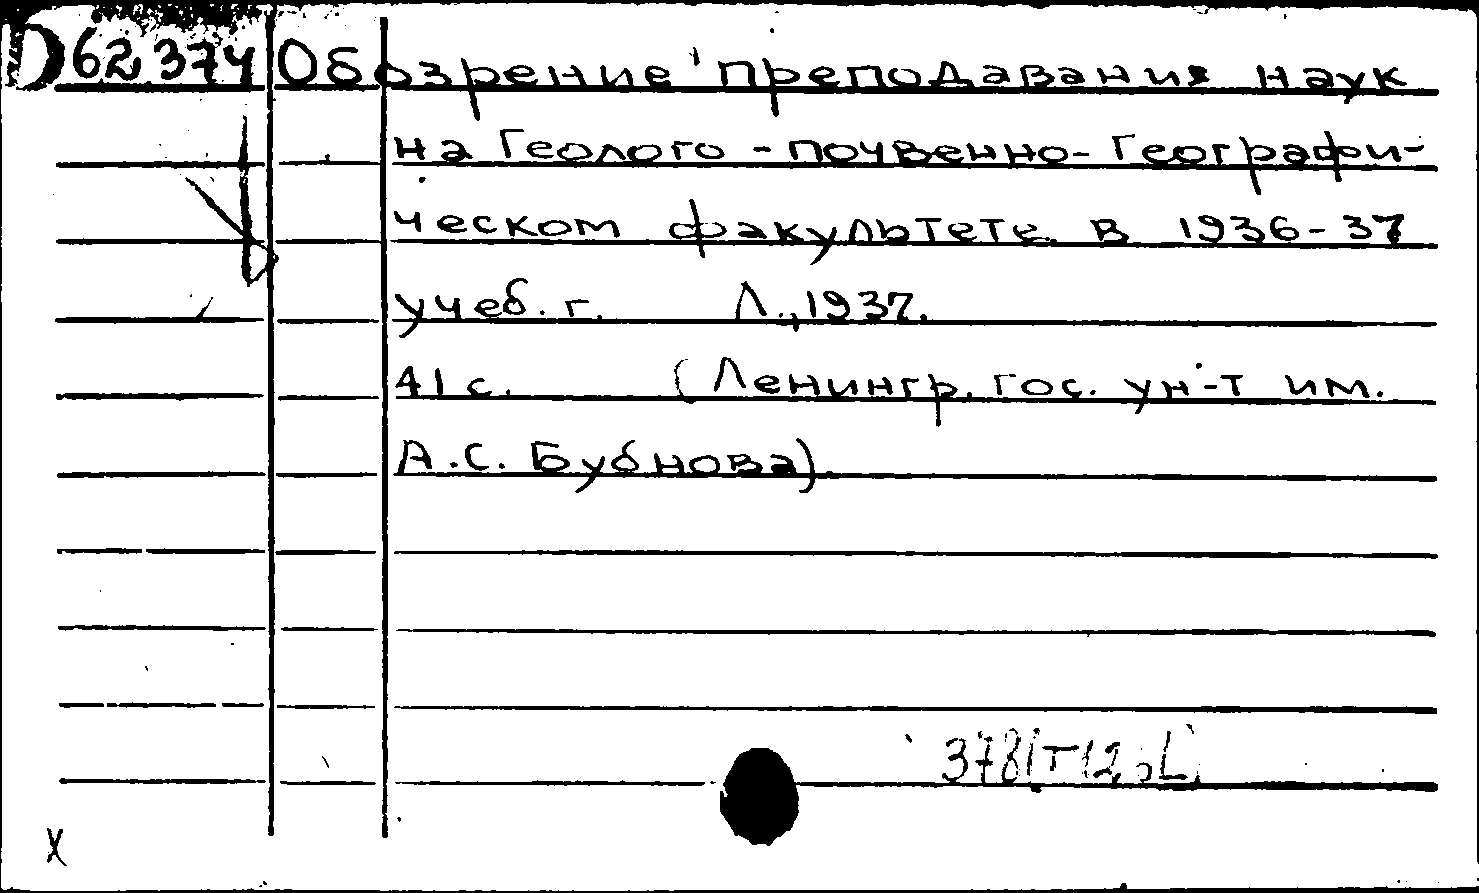 D 62374 Обозрение преподавания наук
на Геолого-почвенно-Географи-
ческом факультете в 1936-37
учеб. г. Л., 1937.
41 с. (Ленингр. гос. ун-т им.
А.С. Бубнова).
X